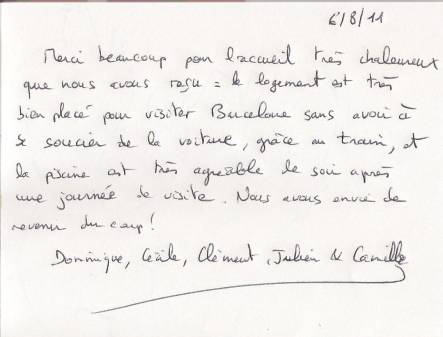 6/8/11
Merci beaucoup pour l'accueil très chaleureux
que nous avons reçu = le logement est très
bien placé pour visiter Barcelone sans avoir à
se soucier de la voiture, grâce au train, et
la piscine est très agréable le soir après
une journée de visite. Nous avons envie de
revenir du coup !
Dominique, Cécile, Clément, Julien & Camille